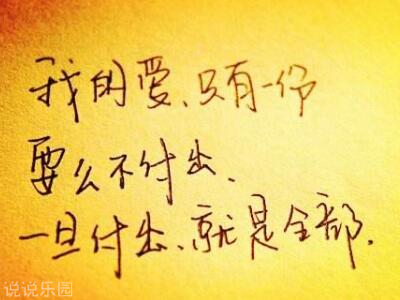 我的爱、只有一份
要么不付出、
一旦付出、就是全部.
说说乐园